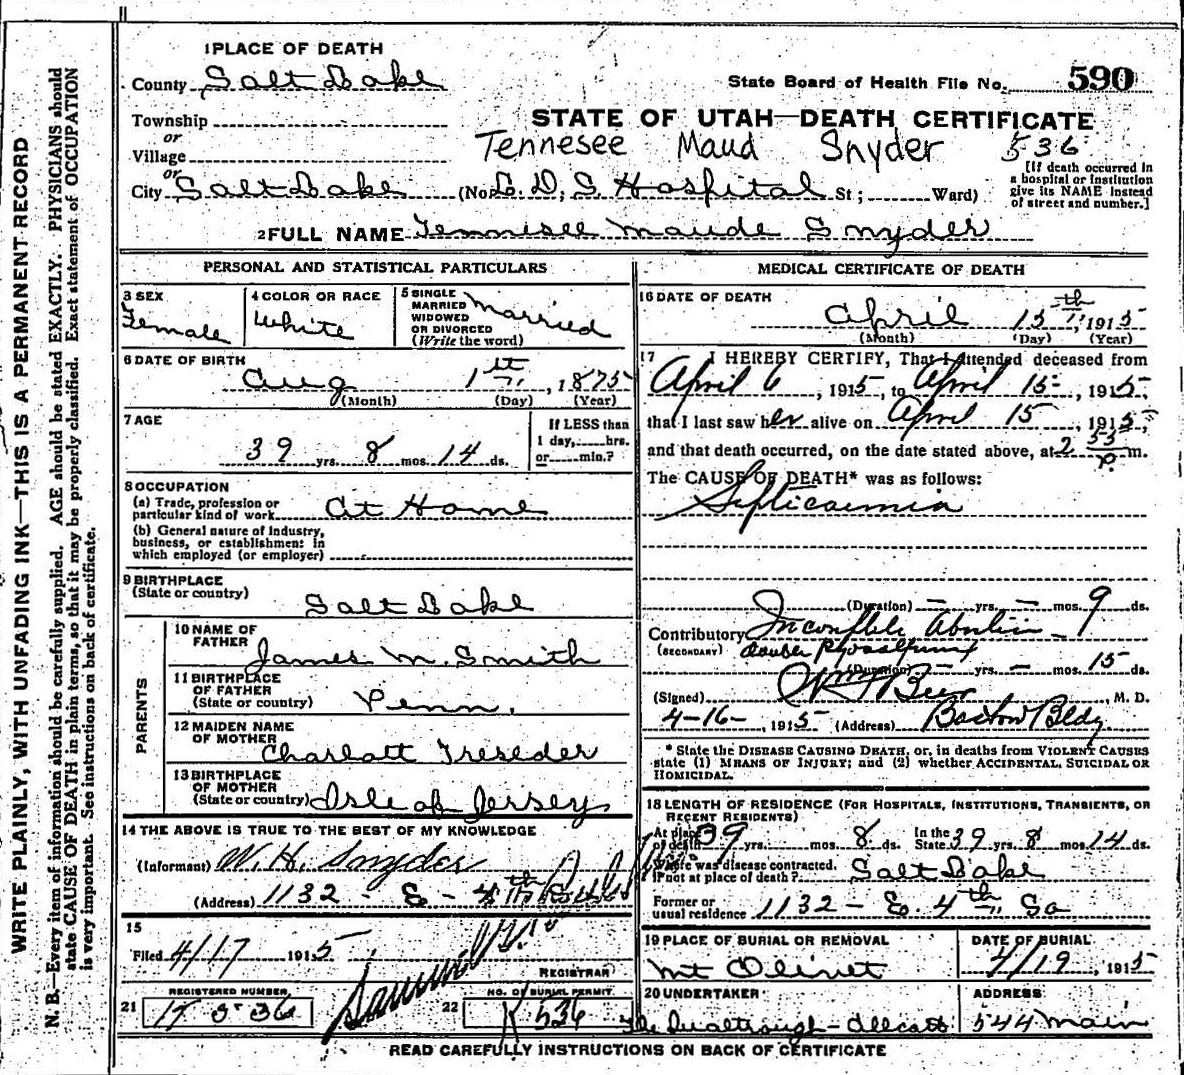 1 PLACE OF DEATH
County Salt Lake
State Board of Health File No. 590
Township
or
Village
or
City Salt Lake (No. L. D. S. Hospital St; Ward)
STATE OF UTAH—DEATH CERTIFICATE
Tennesee Maud Snyder 536
[If death occurred in
a hospital or institution
give its NAME instead
of street and number.]
2 FULL NAME Tennisee Maude Snyder
PERSONAL AND STATISTICAL PARTICULARS
3 SEX
Female
4 COLOR OR RACE
White
5 SINGLE
MARRIED
WIDOWED
OR DIVORCED
(Write the word)
Married
6 DATE OF BIRTH
Aug 1st, 1875
(Month) (Day) (Year)
7 AGE
39 yrs. 8 mos. 14 ds.
If LESS than
1 day, hrs.
or min.?
8 OCCUPATION
(a) Trade, profession or
particular kind of work At Home
(b) General nature of industry,
business, or establishment in
which employed (or employer)
9 BIRTHPLACE
(State or country)
Salt Lake
PARENTS
10 NAME OF
FATHER
James M. Smith
11 BIRTHPLACE
OF FATHER
(State or country) Penn.
12 MAIDEN NAME
OF MOTHER
Charlott Treseder
13 BIRTHPLACE
OF MOTHER
(State or country) Isle of Jersey
14 THE ABOVE IS TRUE TO THE BEST OF MY KNOWLEDGE
(Informant) W. H. Snyder
(Address) 1132 - E - 4th
15
Filed 4/17 1915
REGISTRAR
REGISTERED NUMBER
21
NO. OF BURIAL PERMIT
22 K 536
MEDICAL CERTIFICATE OF DEATH
16 DATE OF DEATH
April 15th, 1915
(Month) (Day) (Year)
17 I HEREBY CERTIFY, That I attended deceased from
April 6, 1915, to April 15, 1915,
that I last saw her alive on April 15, 1915,
and that death occurred, on the date stated above, at 2 55 P. m.
The CAUSE OF DEATH* was as follows:
Septicaemia
(Duration) – yrs. – mos. 9 ds.
Contributory Incomplete Abortion
(SECONDARY)
(Duration) – yrs. – mos. 15 ds.
(Signed) M. D.
4-16-, 1915 (Address) Boston Bldg
* State the DISEASE CAUSING DEATH, or, in deaths from VIOLENT CAUSES
state (1) MEANS OF INJURY; and (2) whether ACCIDENTAL, SUICIDAL OR
HOMICIDAL.
18 LENGTH OF RESIDENCE (FOR HOSPITALS, INSTITUTIONS, TRANSIENTS, OR
RECENT RESIDENTS)
At place
of death 39 yrs. mos. 8 ds. In the
State 39 yrs. 8 mos. 14 ds.
Where was disease contracted.
if not at place of death? Salt Lake
Former or
usual residence 1132 - E. 4th So
19 PLACE OF BURIAL OR REMOVAL
Mt Olivet
DATE OF BURIAL
4/19, 1915
20 UNDERTAKER
ADDRESS
544 Main
READ CAREFULLY INSTRUCTIONS ON BACK OF CERTIFICATE
WRITE PLAINLY, WITH UNFADING INK—THIS IS A PERMANENT RECORD
N. B.—Every item of information should be carefully supplied. AGE should be stated EXACTLY. PHYSICIANS should
state CAUSE OF DEATH in plain terms, so that it may be properly classified. Exact statement of OCCUPATION
is very important. See instructions on back of certificate.